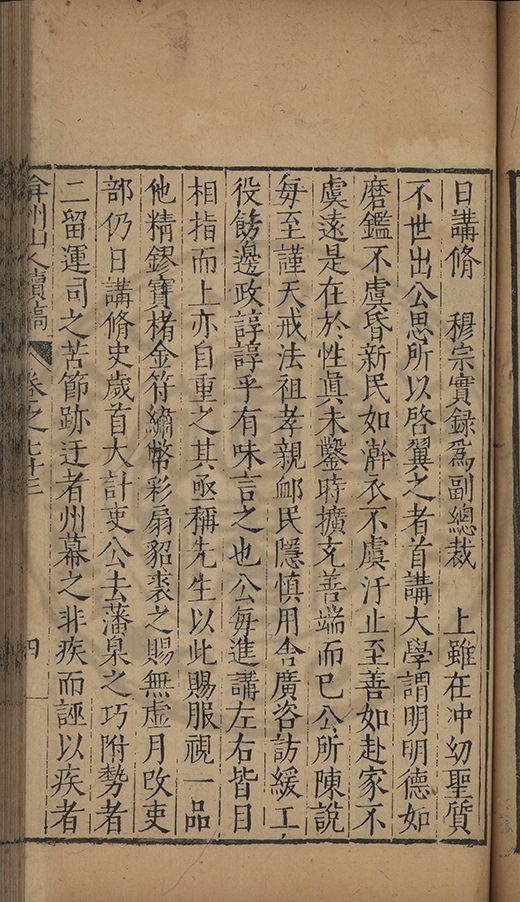 日講脩　穆宗實錄爲副總裁　上雖在冲幼聖質
不世出公思所以啓翼之者首講大學謂明明德如
磨鑑不虞昏新民如澣衣不虞汙止至善如赴家不
虞遠是在於性眞未鑿時擴充善端而已公所陳說
每至謹天戒法祖孝親卹民隱慎用舍廣咨訪緩工
役飭邊政諄諄乎有味言之也公每進講左右皆目
相指而上亦自重之其亟稱先生以此賜服視一品
他精鏐寶楮金符繡幣彩扇貂裘之賜無虛月改吏
部仍日講脩史歲首大計吏公去藩臬之巧附勢者
二留運司之苦節跡迂者州幕之非疾而誣以疾者
弇州山人續稿 卷之七十三 四